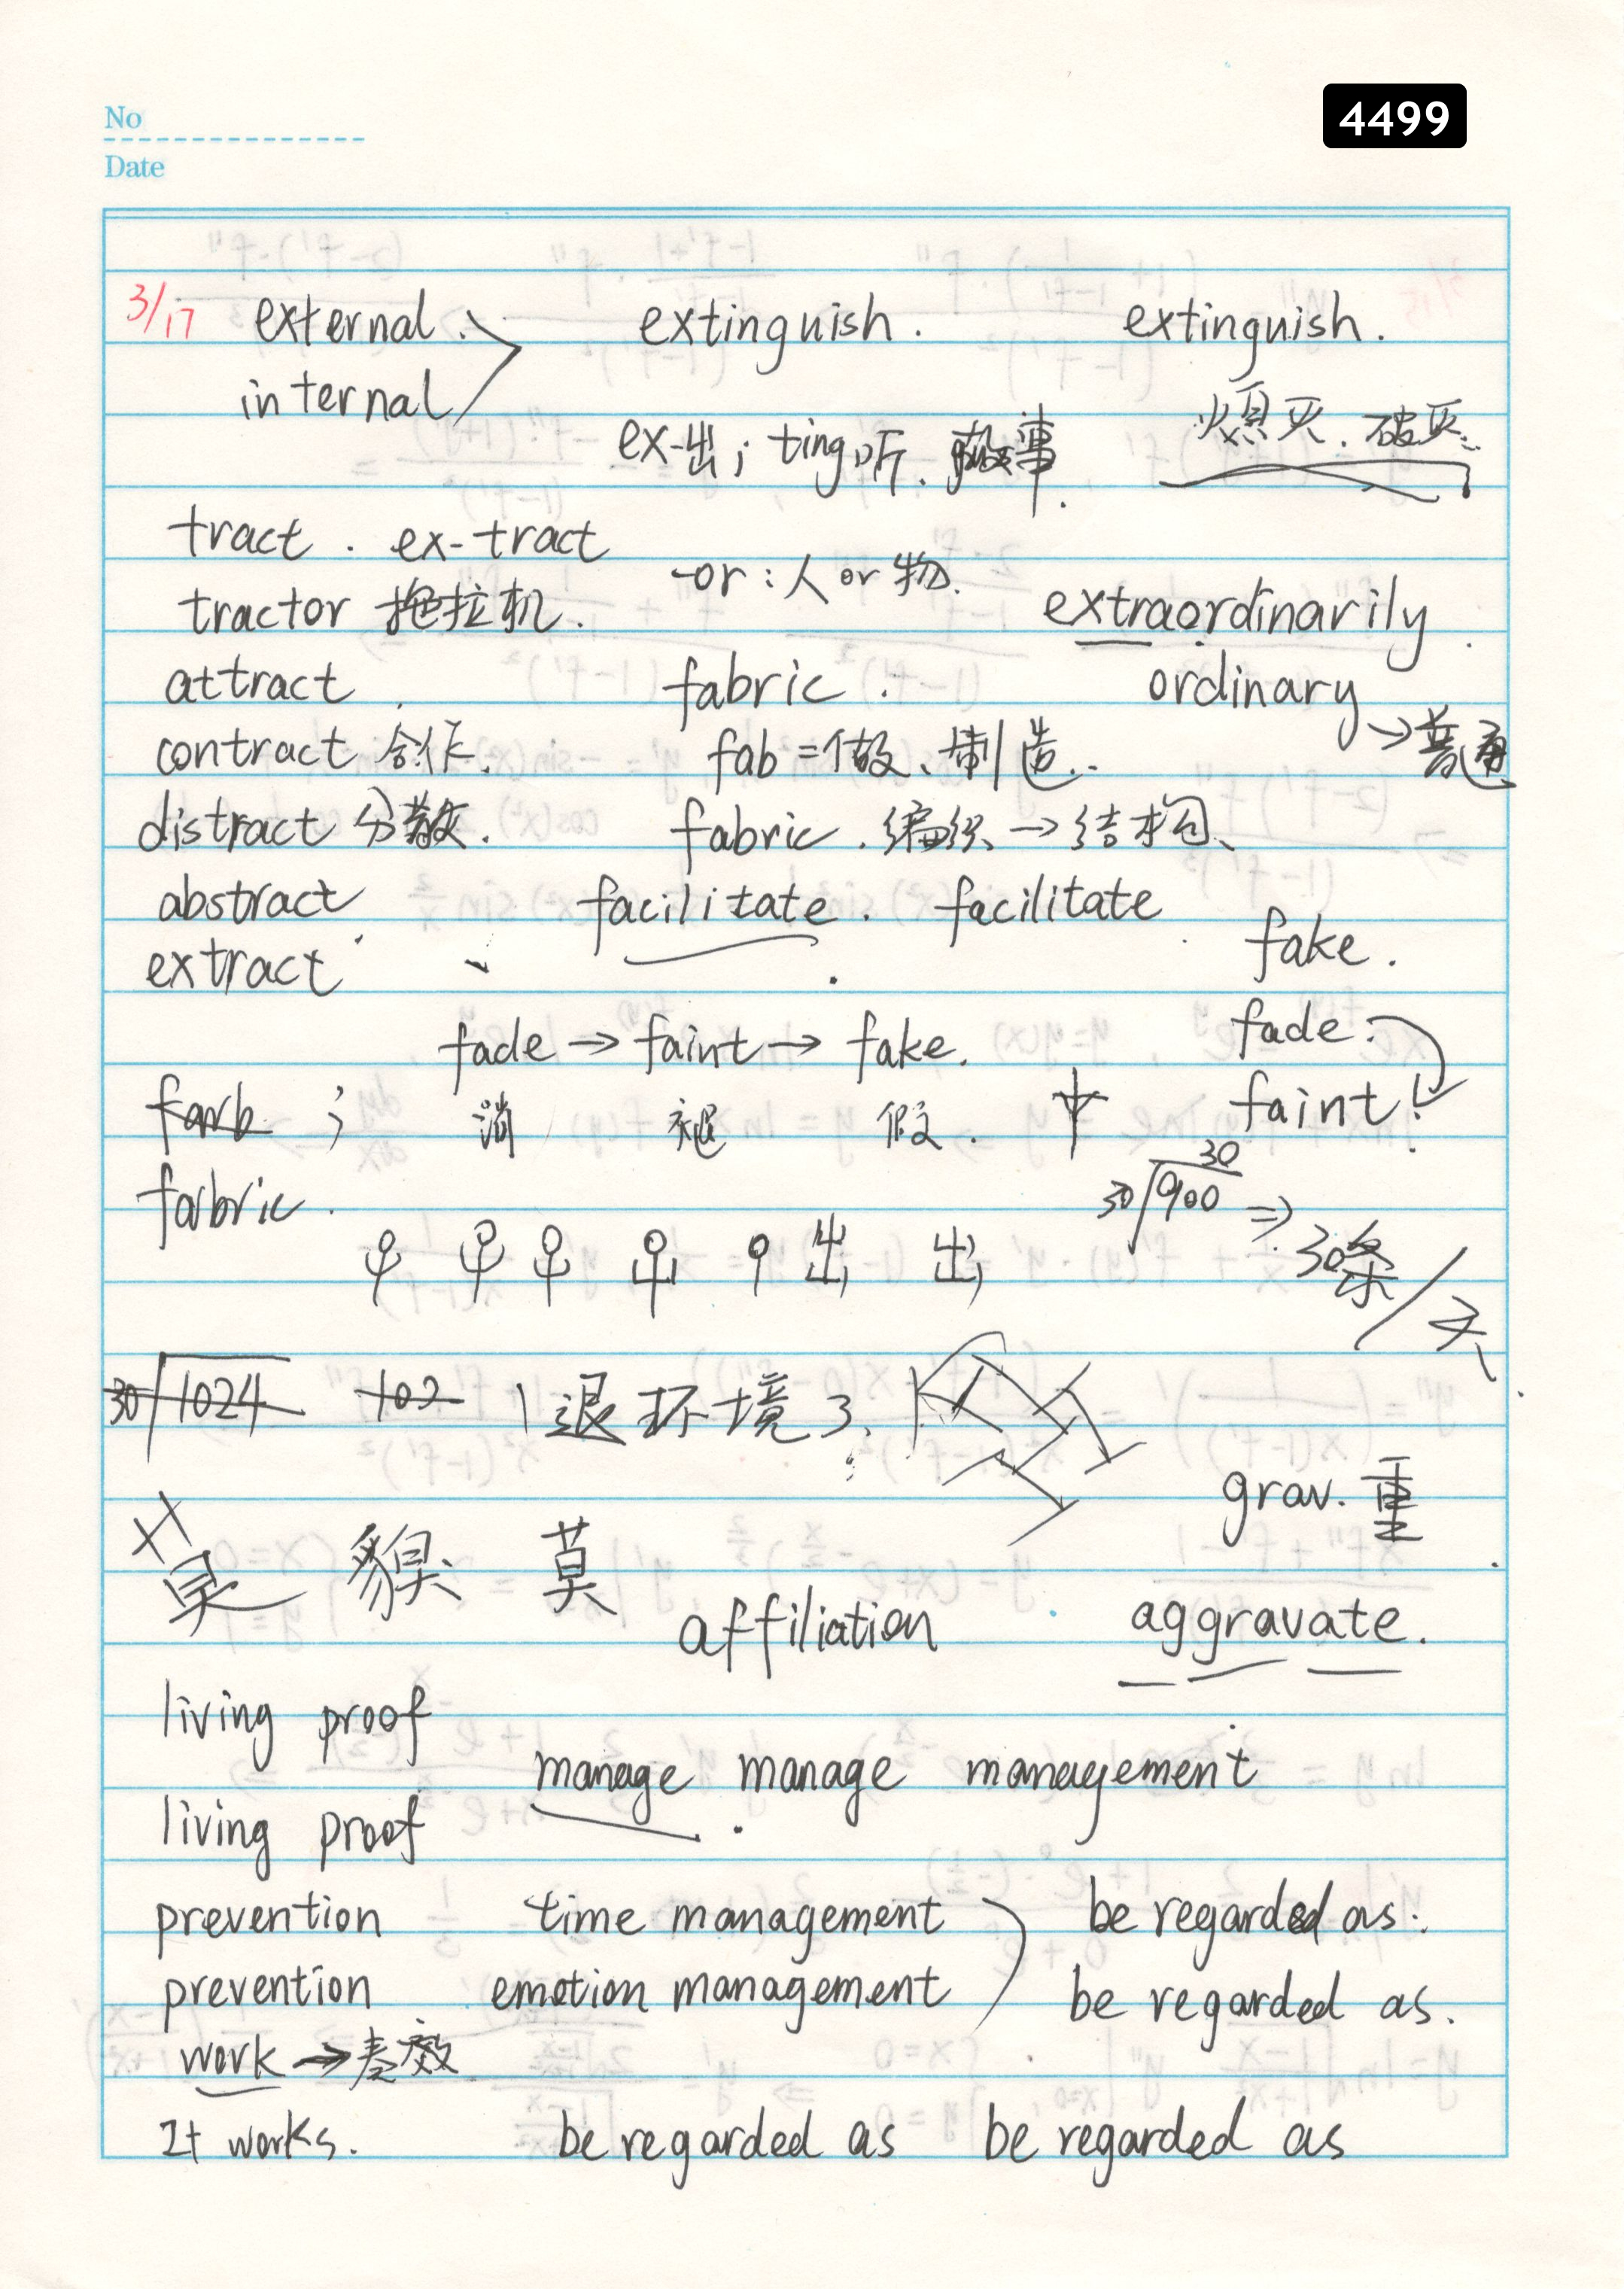 No
4499
Date
3/17 external. extinguish. extinguish.
internal
ex-出; ting 听. 破灭.
tract. ex-tract
-or: 人 or 物.
tractor 拖拉机. extraordinarily.
attract. fabric. ordinary
contract 合作. fab = 做、制造. → 普通
distract 分散. fabric. 编织 → 结构、
abstract facilitate. facilitate
extract fake.
fade → faint → fake. fade:
; 消 褪 假. faint!
fabric.
30 900 30 ⇒ 30条/天
出 出
30 1024 102 退环境了.
grav. 重
貘 莫
affiliation aggravate.
living proof
manage manage management
living proof
prevention time management be regarded as.
prevention emotion management be regarded as.
work → 奏效
It works. be regarded as be regarded as